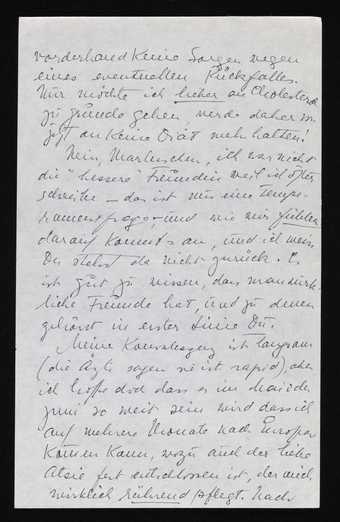 vorderhand keine Sorgen wegen
eines eventuellen Rückfalles.
Nur möchte ich lieber an Cholesterol
zu grunde gehen, werde daher von
jetzt an keine Diät mehr halten!
Nein, Marlenchen, ich war nicht
die "bessere" Freundin weil ich öfter
schreibe – das ist nur eine Tempe-
ramensfrage, und wie wir fühlen
darauf kommt's an, und ich weiss
Du stehst da nicht zurück. Es
ist gut zu wissen, dass man wirk-
liche Freunde hat, und zu denen
gehörst in erster Linie Du.
Meine Konvaleszenz ist langsam
(die Ärzte sagen sie ist rapid), aber
ich hoffe doch dass es im Mai oder
Juni so weit sein wird dass ich
auf mehrere Monate nach Europa
kommen kann, wozu auch der liebe
fest entschlossen ist, der mich
wirklich rührend pflegt. Nach